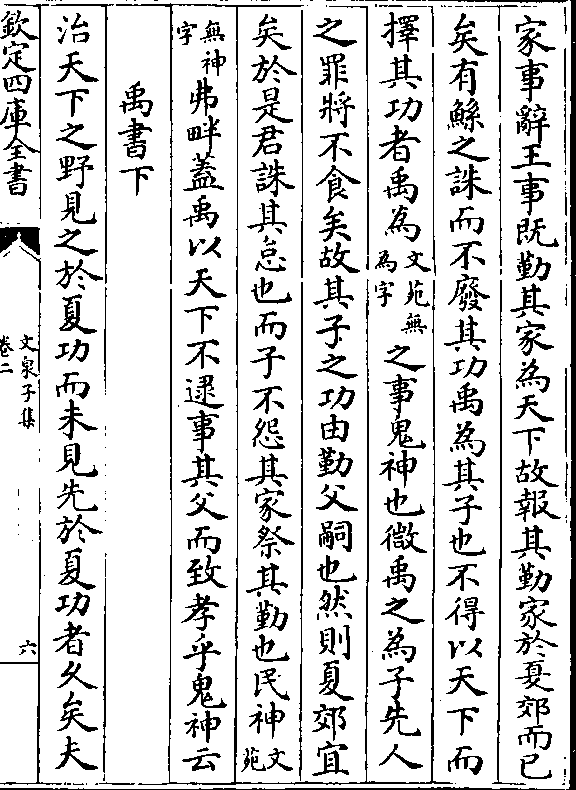 家事辭王事既勤其家為天下故報其勤家於夏郊而已
矣有鯀之誅而不廢其功禹為其子也不得以天下而
擇其功者禹為文苑無為字之事鬼神也微禹之為子先人
之罪將不食矣故其子之功由勤父嗣也然則夏郊宜
矣於是君誅其怠也而子不怨其家祭其勤也民神文苑
無神字弗畔蓋禹以天下不逮事其父而致孝乎鬼神云
禹書下
治天下之野見之於夏功而未見先於夏功者久矣夫
欽定四庫全書
文泉子集
卷二
六